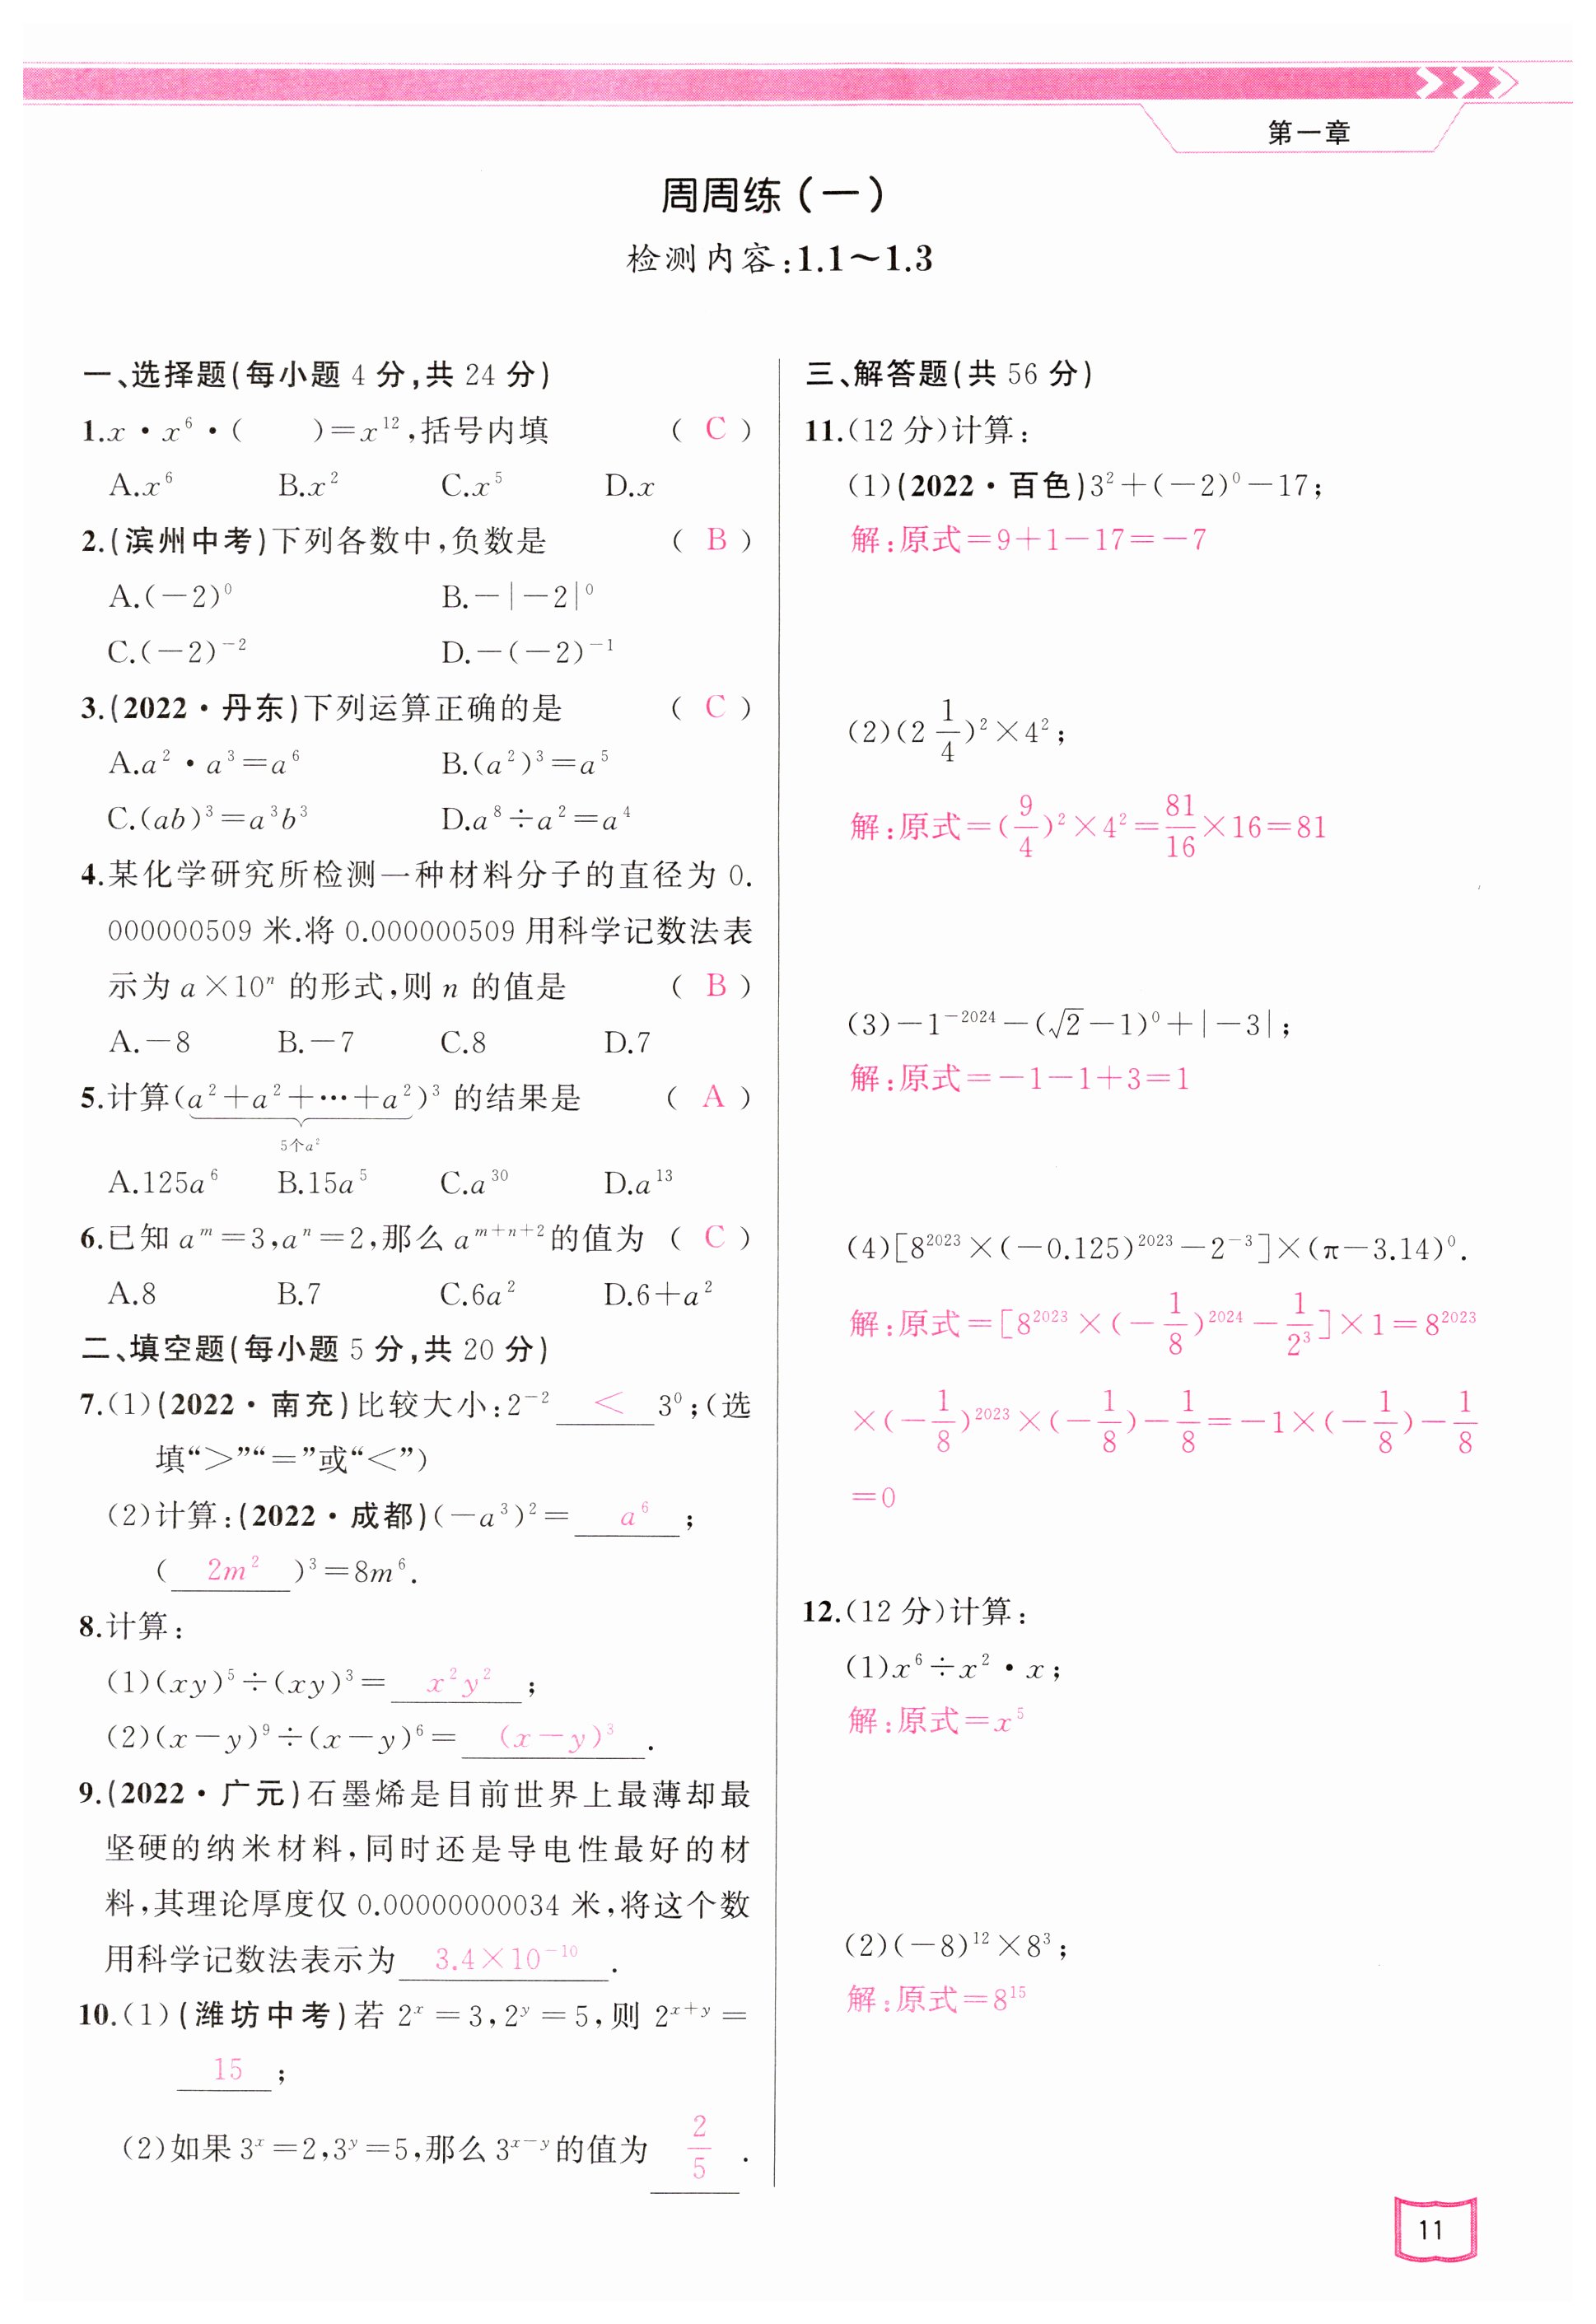 第一章
周周练(一)
检测内容:1.1～1.3
一、选择题(每小题 4 分,共 24 分)
1.x·x⁶·(　　)=x¹²,括号内填 ( C )
A.x⁶ B.x² C.x⁵ D.x
2.(滨州中考)下列各数中,负数是 ( B )
A.(-2)⁰ B.-|-2|⁰
C.(-2)⁻² D.-(-2)⁻¹
3.(2022·丹东)下列运算正确的是 ( C )
A.a²·a³=a⁶ B.(a²)³=a⁵
C.(ab)³=a³b³ D.a⁸÷a²=a⁴
4.某化学研究所检测一种材料分子的直径为 0.
000000509 米.将 0.000000509 用科学记数法表
示为 a×10ⁿ 的形式,则 n 的值是 ( B )
A.-8 B.-7 C.8 D.7
5.计算(a²+a²+…+a²)³ 的结果是 ( A )
5个a²
A.125a⁶ B.15a⁵ C.a³⁰ D.a¹³
6.已知 aᵐ=3,aⁿ=2,那么 aᵐ⁺ⁿ⁺²的值为 ( C )
A.8 B.7 C.6a² D.6+a²
二、填空题(每小题 5 分,共 20 分)
7.(1)(2022·南充)比较大小:2⁻² < 3⁰;(选
填“>”“=”或“<”)
(2)计算:(2022·成都)(-a³)²= a⁶ ;
( 2m² )³=8m⁶.
8.计算:
(1)(xy)⁵÷(xy)³= x²y² ;
(2)(x-y)⁹÷(x-y)⁶= (x-y)³ .
9.(2022·广元)石墨烯是目前世界上最薄却最
坚硬的纳米材料,同时还是导电性最好的材
料,其理论厚度仅 0.00000000034 米,将这个数
用科学记数法表示为 3.4×10⁻¹⁰ .
10.(1)(潍坊中考)若 2ˣ=3,2ʸ=5,则 2ˣ⁺ʸ=
15 ;
(2)如果 3ˣ=2,3ʸ=5,那么 3ˣ⁻ʸ的值为 2/5 .
三、解答题(共 56 分)
11.(12 分)计算:
(1)(2022·百色)3²+(-2)⁰-17;
解:原式=9+1-17=-7
(2)(2 1/4)²×4²;
解:原式=(9/4)²×4²=81/16×16=81
(3)-1⁻²⁰²⁴-(√2-1)⁰+|-3|;
解:原式=-1-1+3=1
(4)[8²⁰²³×(-0.125)²⁰²³-2⁻³]×(π-3.14)⁰.
解:原式=[8²⁰²³×(-1/8)²⁰²⁴-1/2³]×1=8²⁰²³
×(-1/8)²⁰²³×(-1/8)-1/8=-1×(-1/8)-1/8
=0
12.(12 分)计算:
(1)x⁶÷x²·x;
解:原式=x⁵
(2)(-8)¹²×8³;
解:原式=8¹⁵
11